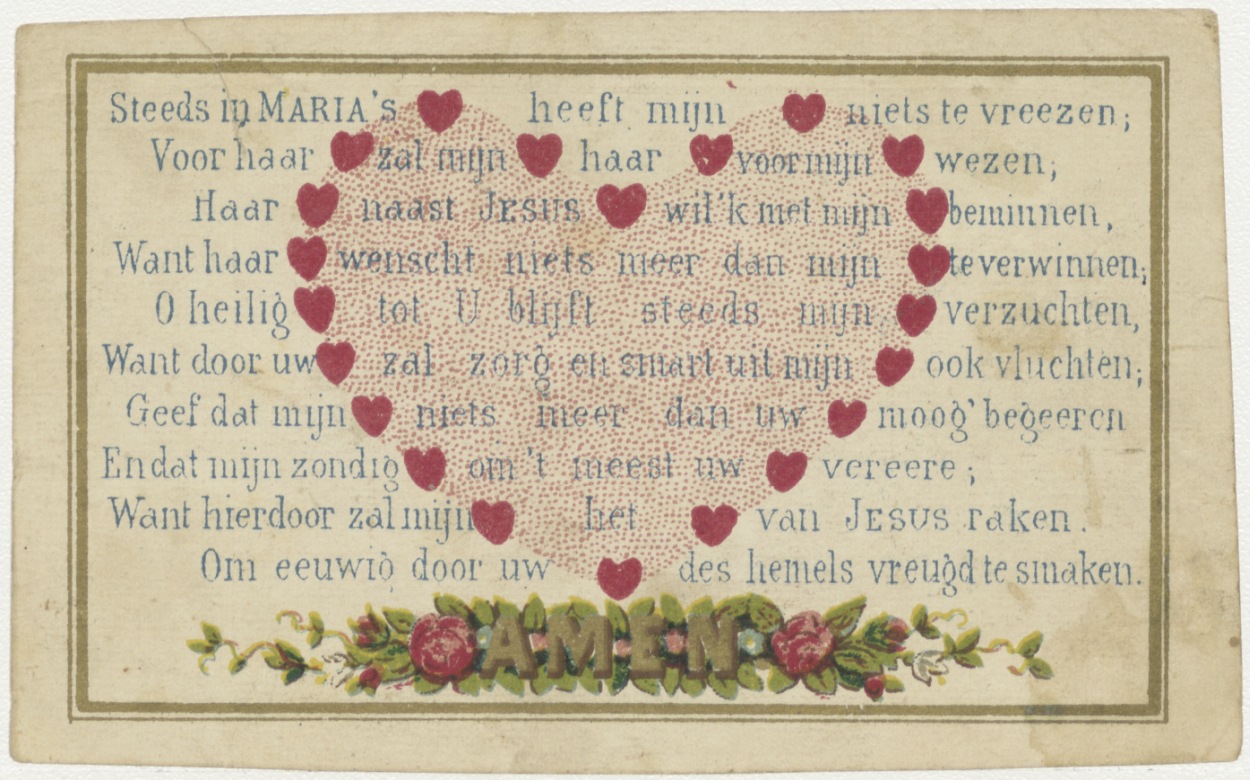 Steeds in MARIA's heeft mijn niets te vreezen;
Voor haar zal mijn haar voor mijn wezen;
Haar naast JESUS wil'k met mijn beminnen,
Want haar wenscht niets meer dan mijn te verwinnen;
O heilig tot U blijft steeds mijn verzuchten,
Want door uw zal zorg en smart uit mijn ook vluchten;
Geef dat mijn niets meer dan uw moog' begeeren
En dat mijn zondig om 't meest uw vereere;
Want hierdoor zal mijn het van JESUS raken.
Om eeuwig door uw des hemels vreugd te smaken.
AMEN